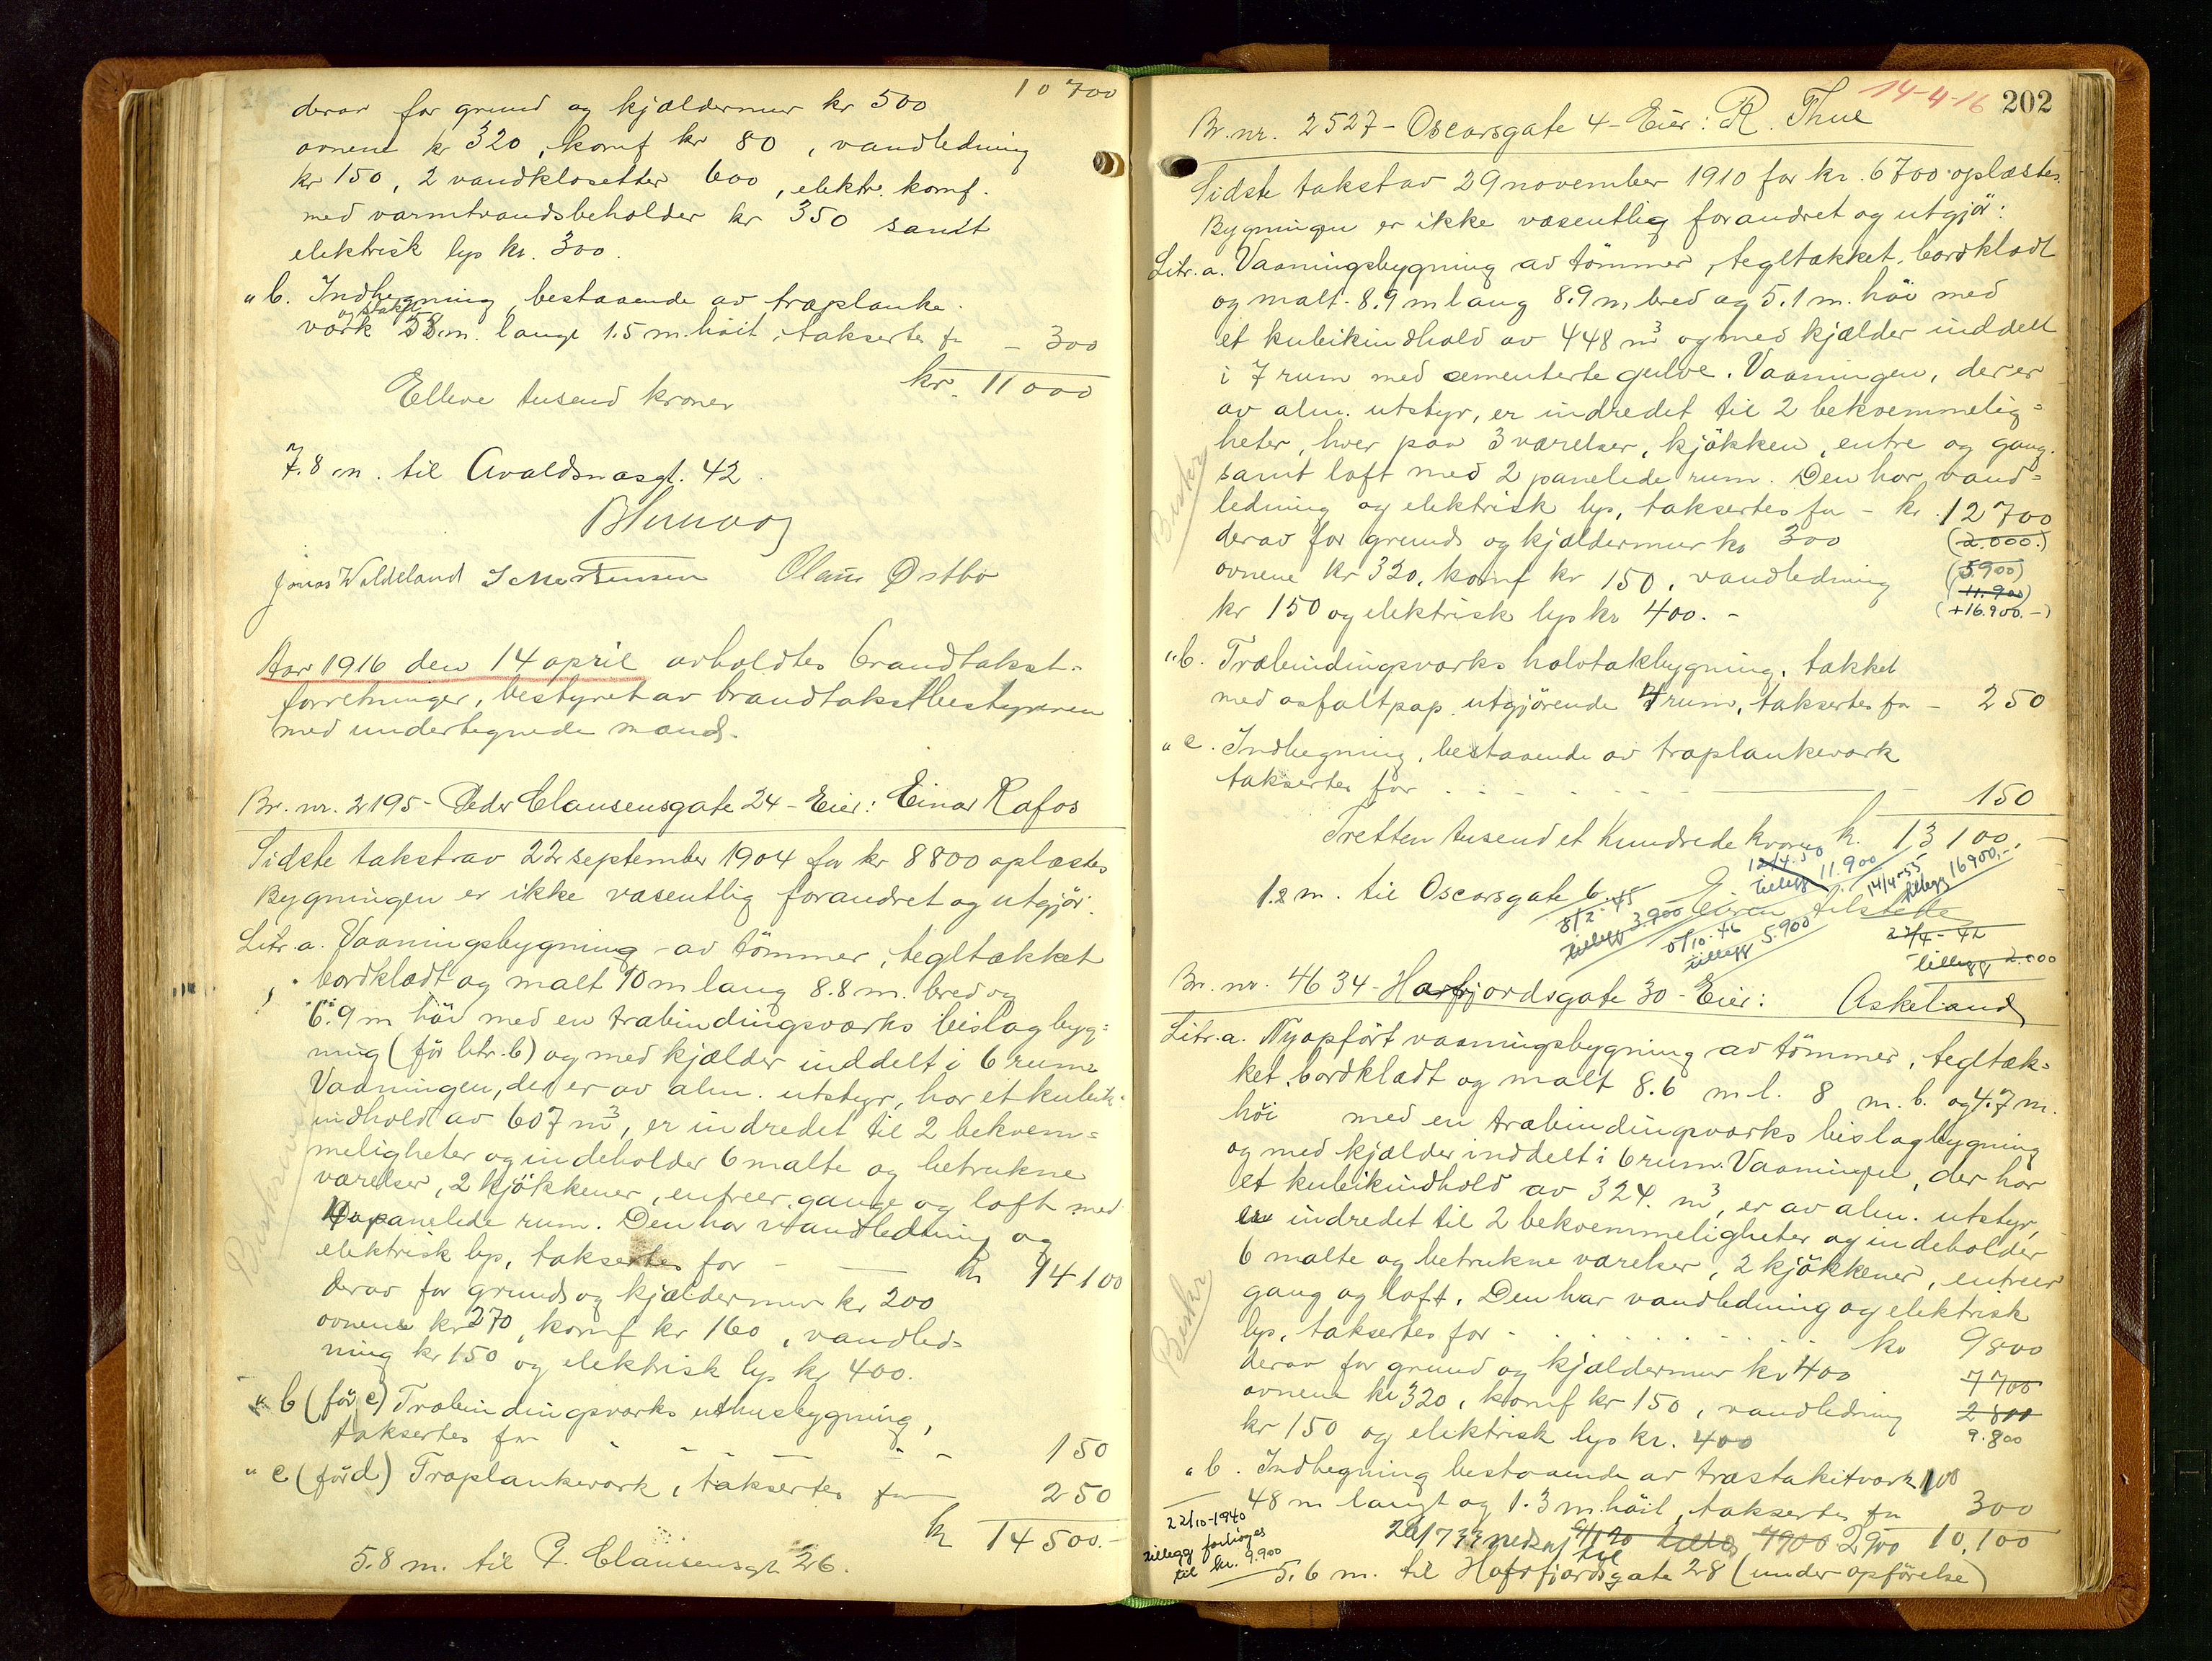 10 700
derav for grund og kjældermur kr 500
ovnene kr 320, komf kr 80, vandledning
kr 150, 2 vandklosetter 600, elektr. komf.
med varmtvandsbeholder kr 350 samt
elektrisk lys kr. 300.
" b. Indhegning, bestaaende av træplanke-
og stakit
værk 58 m. lange 1.5 m. höit, taksertes for – 300
kr. 11 000
Elleve tusend kroner
7.8 m. til Avaldsnæsgt. 42.
Jonas Wildeland S Mortensen Olaus Østbø
Aar 1916 den 14 april avholdtes brandtakst-
forretninger, bestyret av brandtakstbestyreren
med undertegnede mænd.
Br. nr. 2195 - Peder Clausensgate 24 - Eier: Einar Rafos
Sidste takst av 22 september 1904 for kr 8800 oplæstes
Bygningen er ikke væsentlig forandret og utgjör:
Litr. a. Vaaningsbygning av tömmer, tegltækket
bordklædt og malt 10 m lang 8.8 m. bred og
6.9 m höi med en træbindingsværks bislagbyg=
ning (för litr. b) og med kjælder inddelt i 6 rum.
Vaaningen, der er av alm. utstyr, har et kubik-
indhold av 607 m³, er indredet til 2 bekvem=
meligheter og indeholder 6 malte og betrukne
værelser, 2 kjökkener, entreer, gange og loft med
panelede rum. Den har vandledning og
elektrisk lys, taksertes for – kr 14 100
derav for grund og kjældermur kr 200
ovnene kr 270, komf kr 160, vandled=
ning kr 150 og elektrisk lys kr 400.
" b (för c) Træbindingsværks uthusbygning,
taksertes for – 150
" c (för d) Træplankeværk, taksertes for 250
kr 14 500.-
5.8 m. til P. Clausensgt. 26.
Beskrevet
14-4-16 202
Br. nr. 2527 - Oscarsgate 4 - Eier: R. Thue
Sidste takst av 29 november 1910 for kr. 6700 oplæstes.
Bygningen er ikke væsentlig forandret og utgjör:
Litr. a. Vaaningsbygning av tömmer, tegltækket, bordklædt
og malt. 8.9 m lang 8.9 m bred og 5.1 m. höi med
et kubikindhold av 448 m³ og med kjælder inddelt
i 7 rum med sementerte gulve. Vaaningen, der er
av alm. utstyr, er indredet til 2 bekvemmelig=
heter, hver paa 3 værelser, kjökken, entre og gang.
samt loft med 2 panelede rum. Den har vand=
ledning og elektrisk lys, taksertes for – kr. 12 700
derav for grund og kjældermur kr 300 (2.000.)
ovnene kr 320, komf kr 150, vandledning (5900)
(11.900)
kr 150 og elektrisk lys kr 400. – (+16.900.-)
" b. Træbindingsværks halvtakbygning, tækket
med asfaltpap utgjörende 4 rum, taksertes for – 250
" c. Indhegning, bestaaende av træplankeværk
taksertes for – 150
Tretten tusend et hundrede kroner kr. 13 100.
12/4.50 tillegg 11.900
14/4-55 tillegg 16900.-
1.2 m. til Oscarsgate 6.
8/2-45 tillegg 3.900
5/10-46 tillegg 5.900
23/4-42
tillegg 2.000
Br. nr. 4634 - Hafrsfjordsgate 30 - Eier: Askeland
Litr. a. Nyopfört vaaningsbygning av tömmer, tegltæk=
ket, bordklædt og malt 8.6 m l. 8 m. b. og 4.7 m.
höi med en træbindingsværks bislagbygning
og med kjælder inddelt i 6 rum. Vaaningen, der har
et kubikindhold av 324. m³, er av alm. utstyr,
er indredet til 2 bekvemmeligheter og indeholder
6 malte og betrukne værelser, 2 kjökkener, entreer
gang og loft. Den har vandledning og elektrisk
lys, taksertes for – kr 9800
derav for grund og kjældermur kr 400 7700
ovnene kr 320, komf kr 150, vandledning 2800
kr 150 og elektrisk lys kr. 400 9.800
" b. Indhegning bestaaende av træstakitværk 100
48 m langt og 1.3 m. höit, taksertes for 300
10,100
22/10-1940
tillegg forhöies
til kr. 9.900
5.6 m. til Hafrsfjordsgate 28 (under opförelse)
Beskr
Beskr